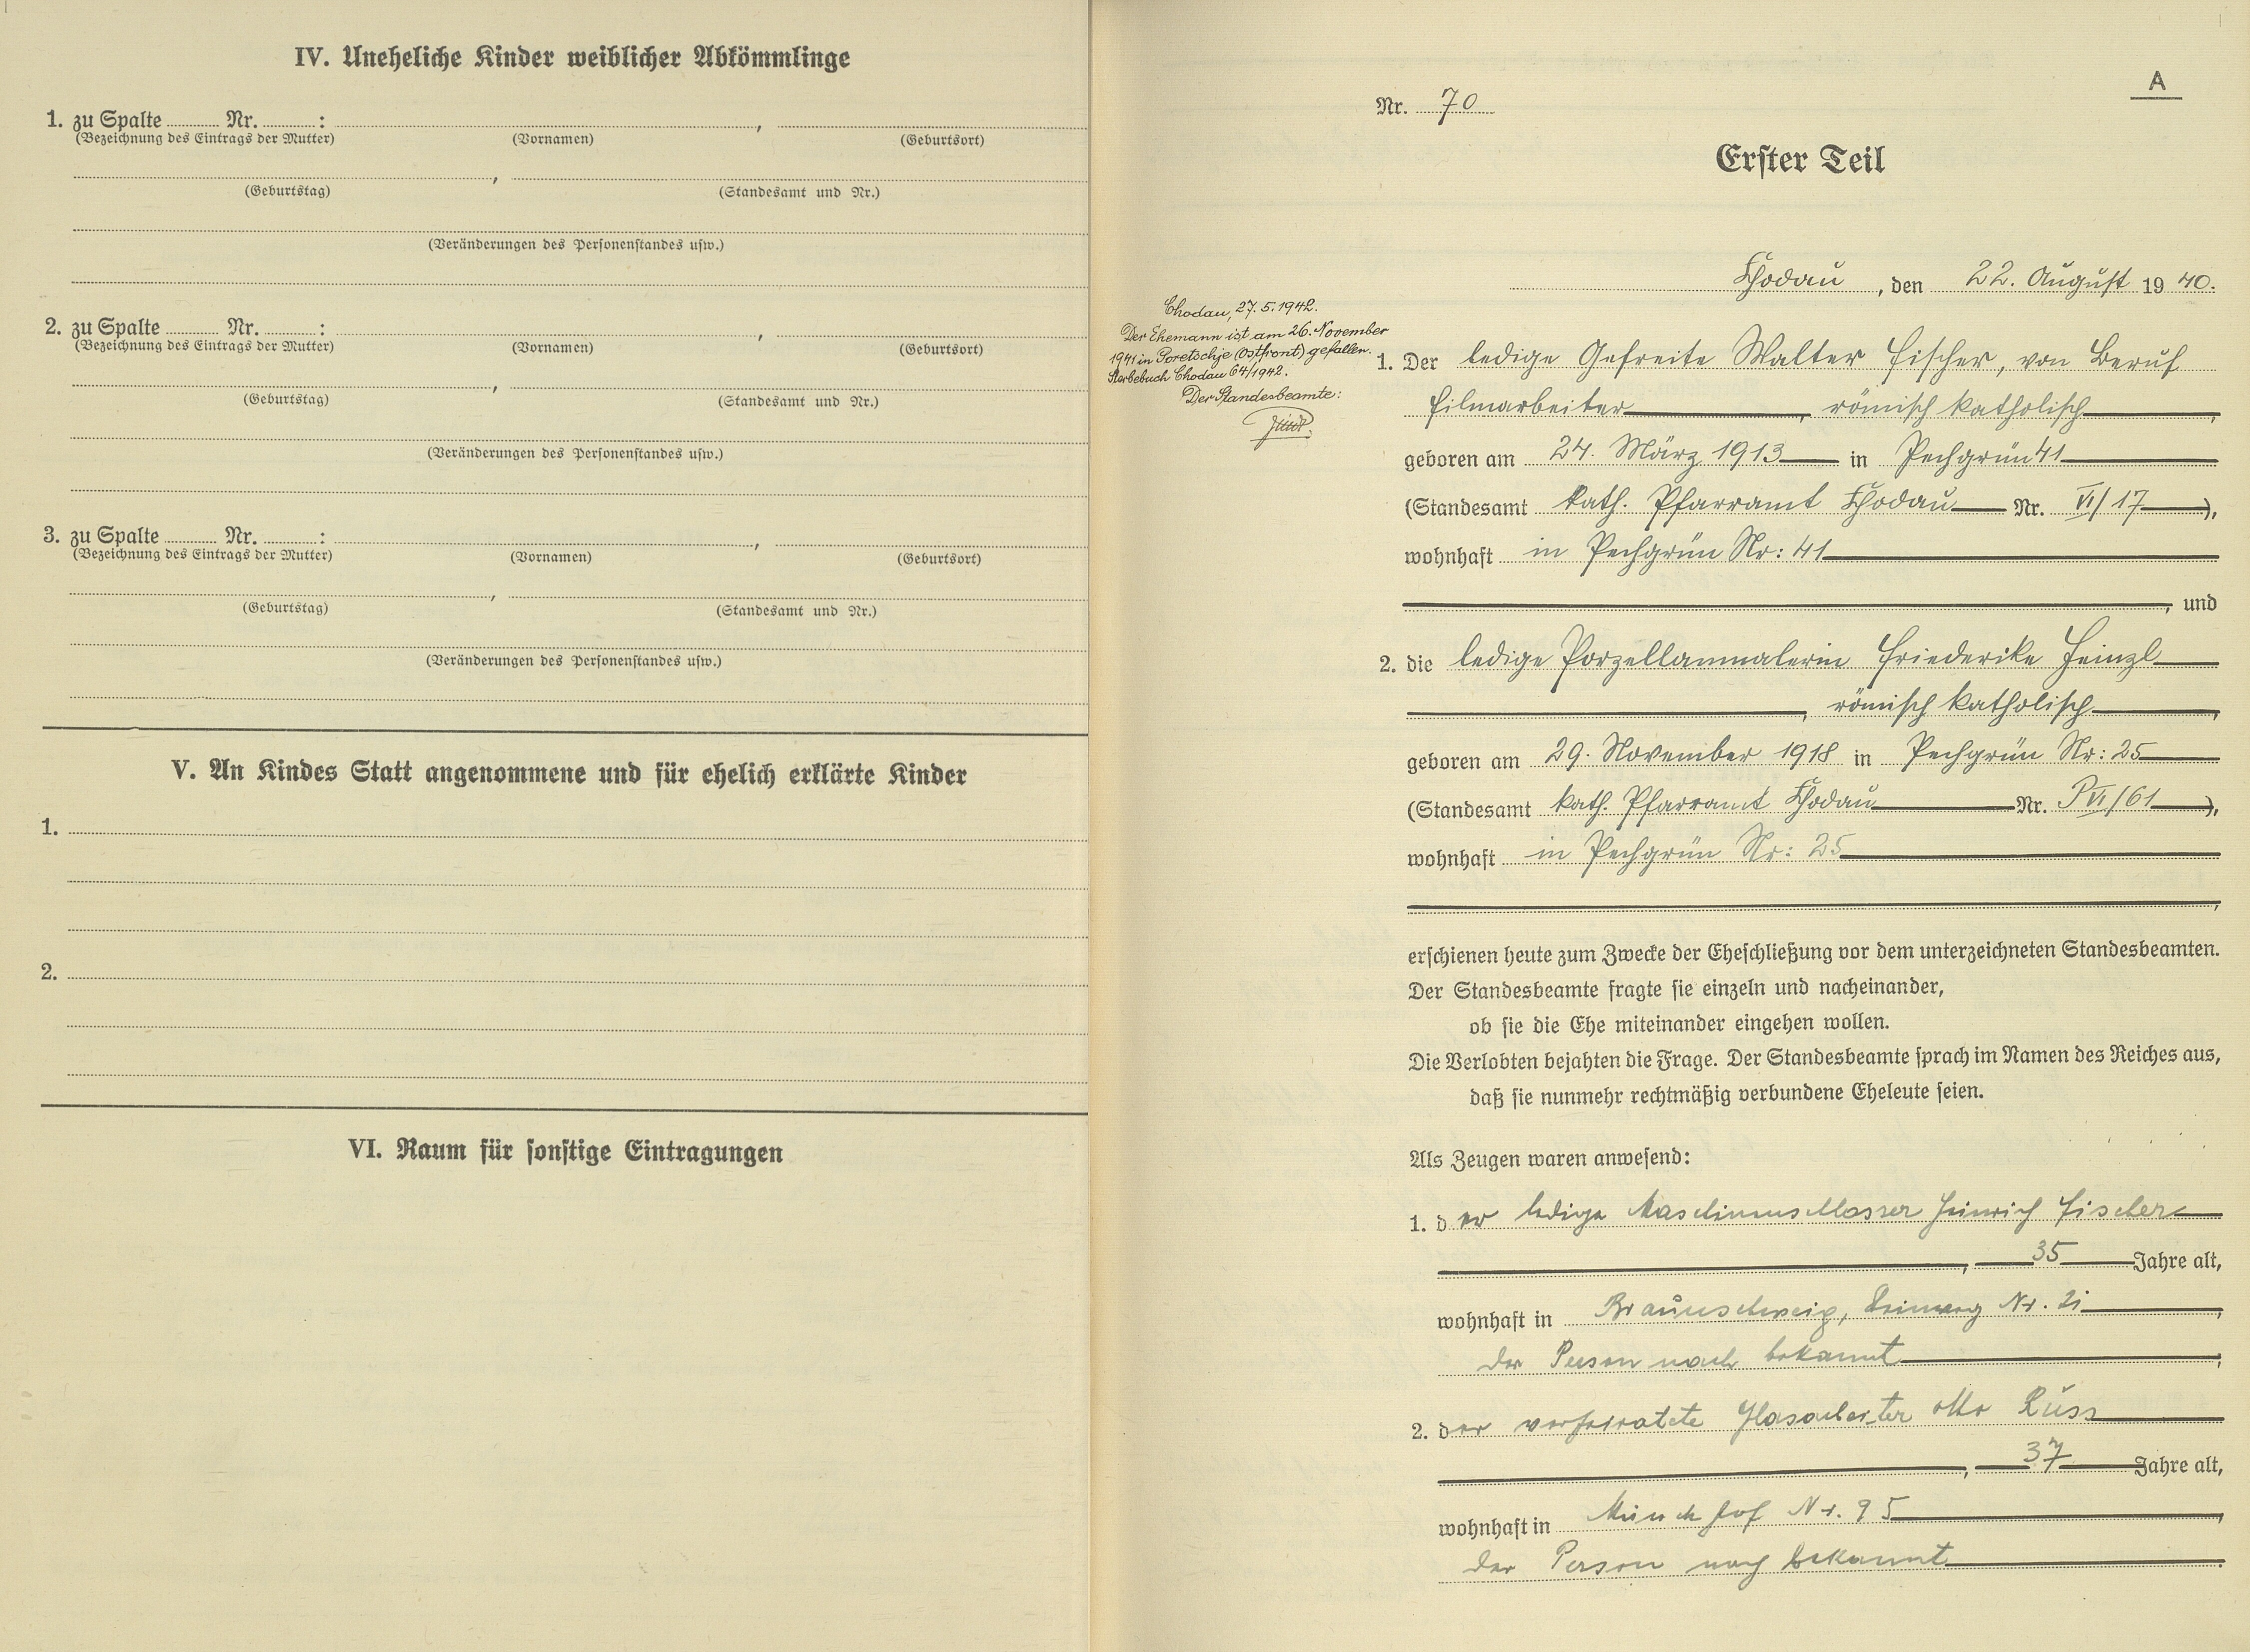 IV. Uneheliche Kinder weiblicher Abkömmlinge
1. zu Spalte ........ Nr. ........ : ........ , ........
(Bezeichnung des Eintrags der Mutter) (Vornamen) (Geburtsort)
........ , ........
(Geburtstag) (Standesamt und Nr.)
(Veränderungen des Personenstandes usw.)
2. zu Spalte ........ Nr. ........ : ........ , ........
(Bezeichnung des Eintrags der Mutter) (Vornamen) (Geburtsort)
........ , ........
(Geburtstag) (Standesamt und Nr.)
(Veränderungen des Personenstandes usw.)
3. zu Spalte ........ Nr. ........ : ........ , ........
(Bezeichnung des Eintrags der Mutter) (Vornamen) (Geburtsort)
........ , ........
(Geburtstag) (Standesamt und Nr.)
(Veränderungen des Personenstandes usw.)
V. An Kindes Statt angenommene und für ehelich erklärte Kinder
1.
2.
VI. Raum für sonstige Eintragungen
A
Nr. 70
Erster Teil
Chodau, den 22. August 1940.
Chodau, 27.5.1942.
Der Ehemann ist am 26. November
1941 in Poretschje (Ostfront) gefallen.
Sterbebuch Chodau 64/1942.
Der Standesbeamte:
1. Der ledige Gefreite Walter Fischer, von Beruf
Filmarbeiter, römisch katholisch,
geboren am 24. März 1913 in Pechgrün 41
(Standesamt kath. Pfarramt Chodau Nr. VI/17),
wohnhaft in Pechgrün Nr: 41
, und
2. die ledige Porzellanmalerin Friederike Heinzl
, römisch katholisch,
geboren am 29. November 1918 in Pechgrün Nr: 25
(Standesamt kath. Pfarramt Chodau Nr. P VI/61),
wohnhaft in Pechgrün Nr: 25
,
erschienen heute zum Zwecke der Eheschließung vor dem unterzeichneten Standesbeamten.
Der Standesbeamte fragte sie einzeln und nacheinander,
ob sie die Ehe miteinander eingehen wollen.
Die Verlobten bejahten die Frage. Der Standesbeamte sprach im Namen des Reiches aus,
daß sie nunmehr rechtmäßig verbundene Eheleute seien.
Als Zeugen waren anwesend:
1. der ledige Maschinenschlosser Heinrich Fischer
, 35 Jahre alt,
wohnhaft in Braunschweig, Nr. 21,
der Person nach bekannt,
2. der verheiratete Glasarbeiter Otto Russ
, 37 Jahre alt,
wohnhaft in Münchhof Nr. 95,
der Person nach bekannt.